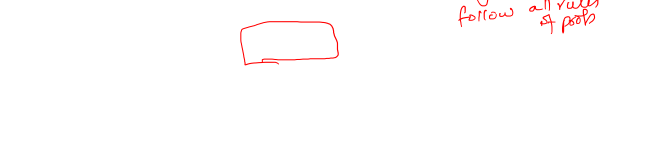 follow all rules
of probs